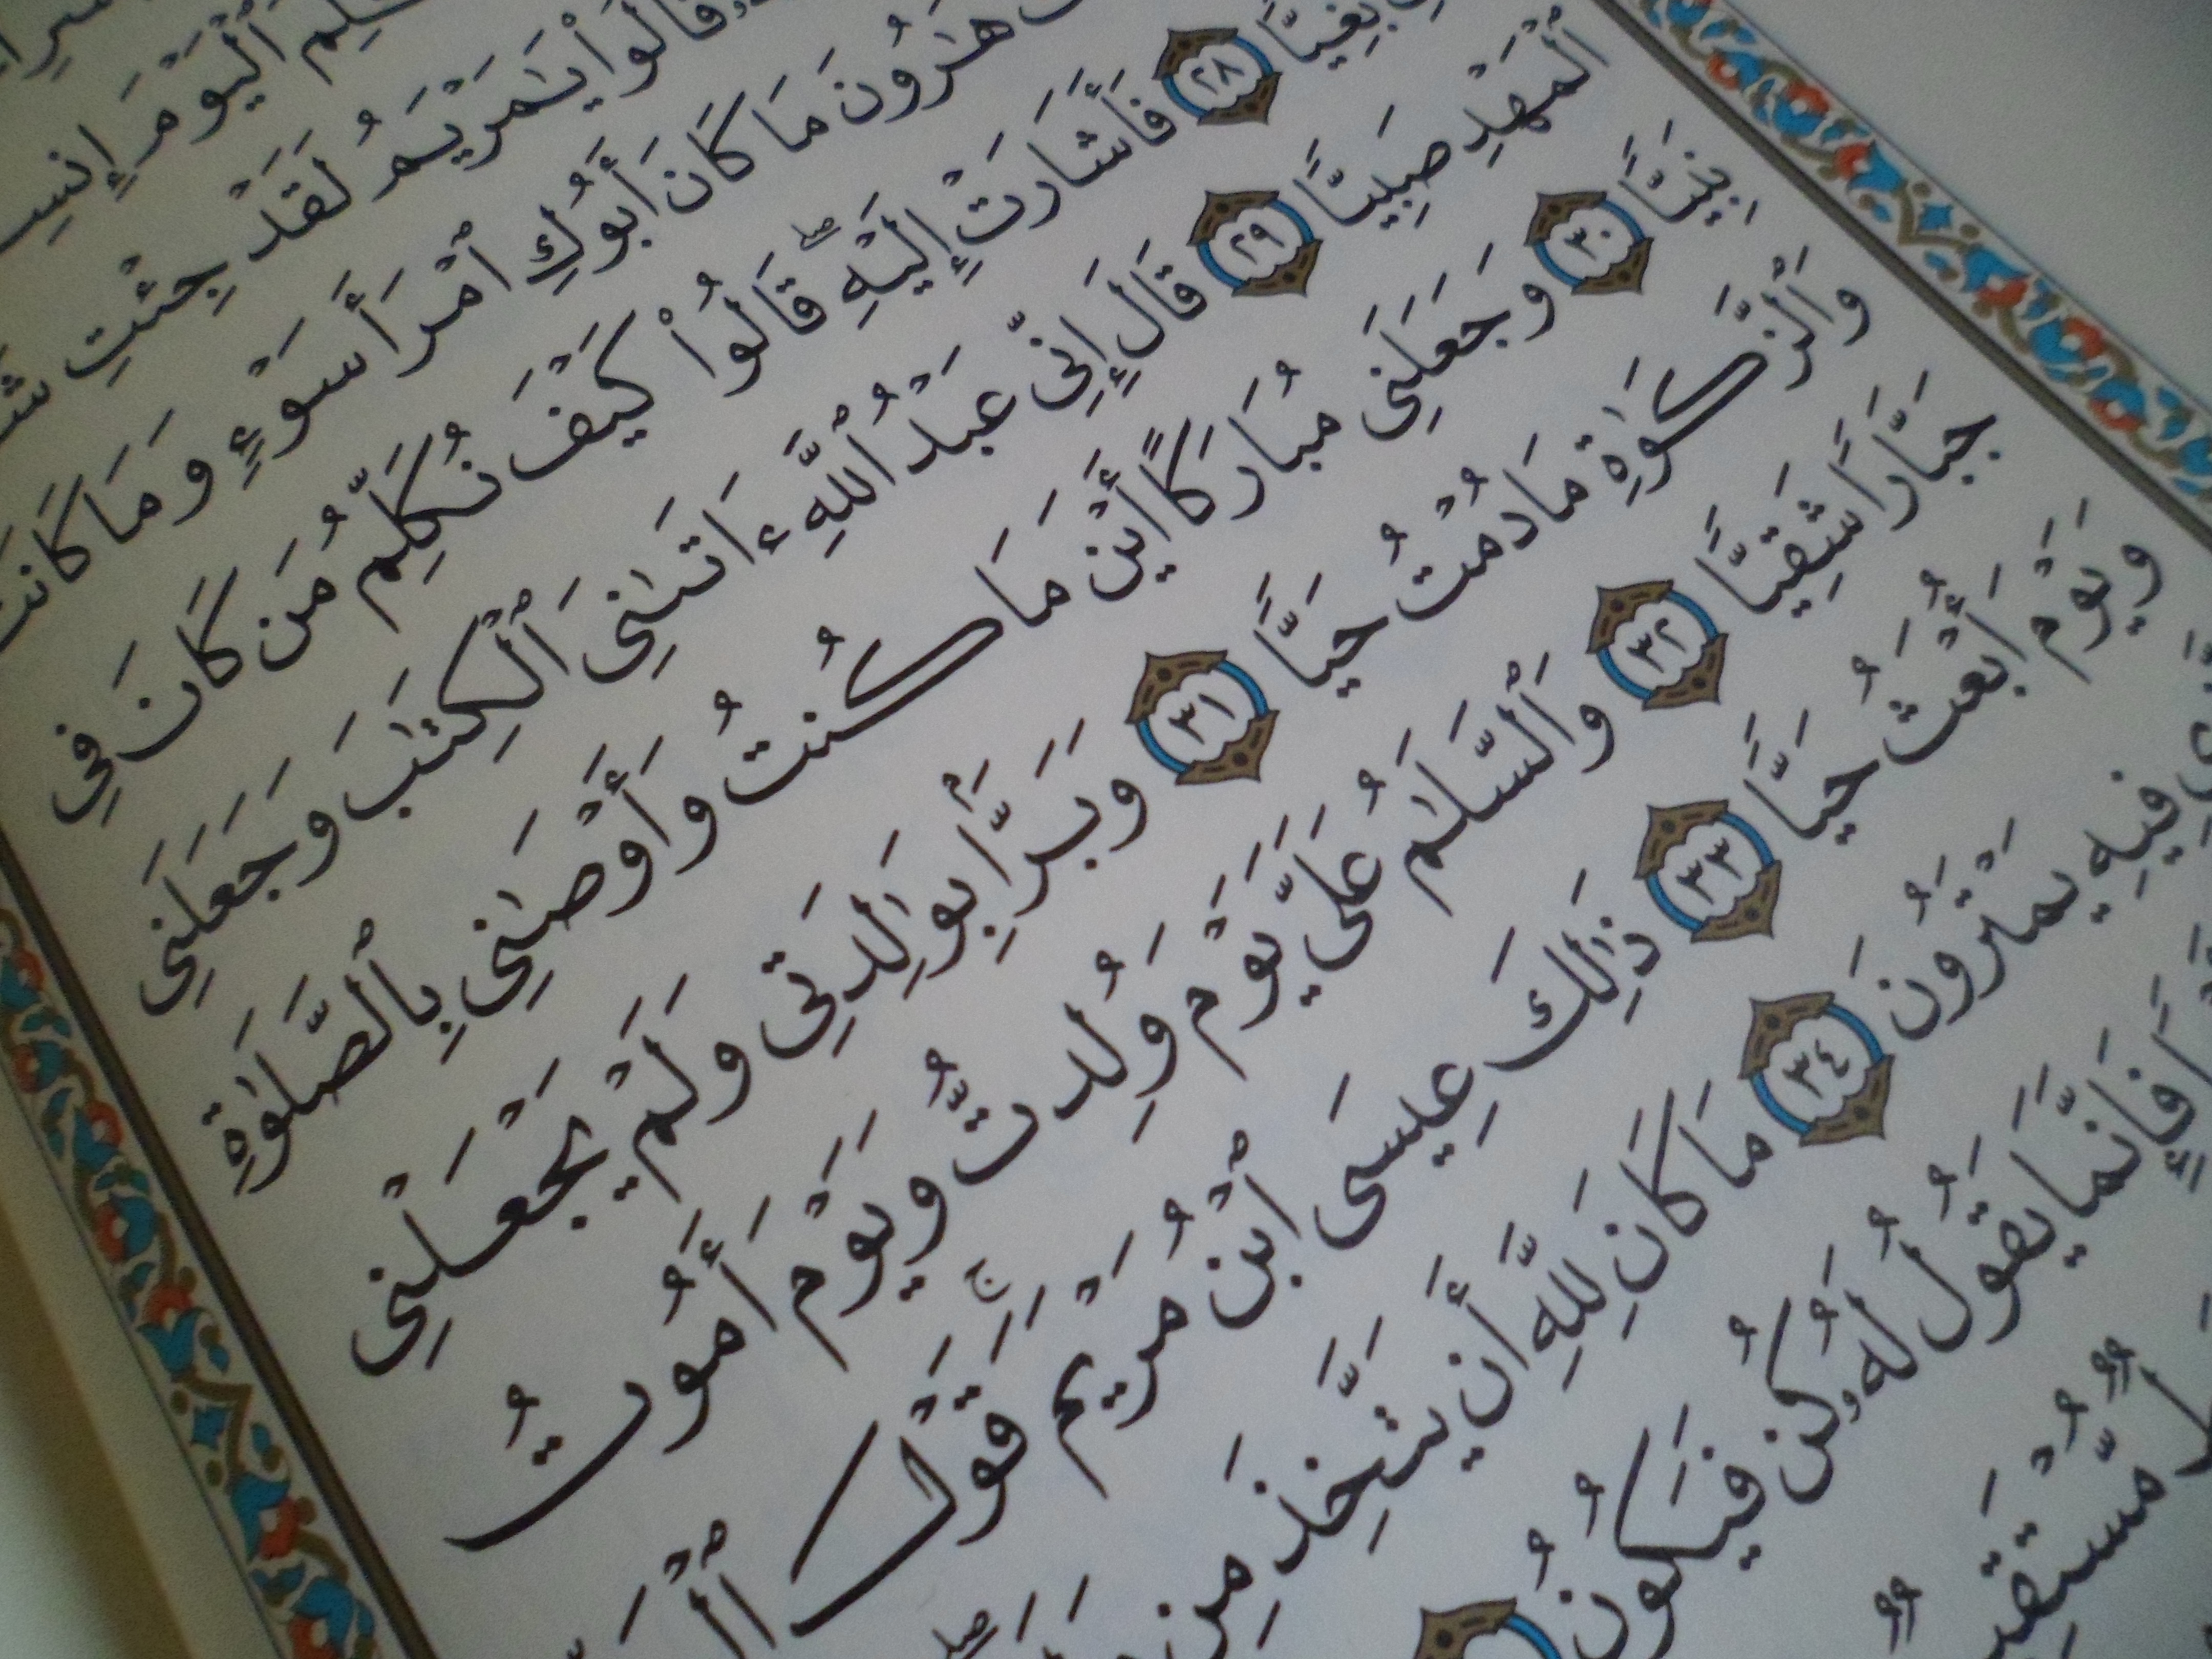 ٱلْيَوْمَ
قَالُوا۟ يَـٰمَرْيَمُ لَقَدْ جِئْتِ
هَـٰرُونَ مَا كَانَ أَبُوكِ ٱمْرَأَ سَوْءٍ وَمَا كَانَتْ
بَغِيًّا ٢٨ فَأَشَارَتْ إِلَيْهِ ۖ قَالُوا۟ كَيْفَ نُكَلِّمُ مَن كَانَ فِى
ٱلْمَهْدِ صَبِيًّا ٢٩ قَالَ إِنِّى عَبْدُ ٱللَّهِ ءَاتَىٰنِىَ ٱلْكِتَـٰبَ وَجَعَلَنِى
نَبِيًّا ٣٠ وَجَعَلَنِى مُبَارَكًا أَيْنَ مَا كُنتُ وَأَوْصَـٰنِى بِٱلصَّلَوٰةِ
وَٱلزَّكَوٰةِ مَا دُمْتُ حَيًّا ٣١ وَبَرًّۢا بِوَٰلِدَتِى وَلَمْ يَجْعَلْنِى
جَبَّارًا شَقِيًّا ٣٢ وَٱلسَّلَـٰمُ عَلَىَّ يَوْمَ وُلِدتُّ وَيَوْمَ أَمُوتُ
وَيَوْمَ أُبْعَثُ حَيًّا ٣٣ ذَٰلِكَ عِيسَى ٱبْنُ مَرْيَمَ ۚ قَوْلَ
فِيهِ يَمْتَرُونَ ٣٤ مَا كَانَ لِلَّهِ أَن يَتَّخِذَ مِن
فَإِنَّمَا يَقُولُ لَهُۥ كُن فَيَكُونُ
مُّسْتَقِيمٌ